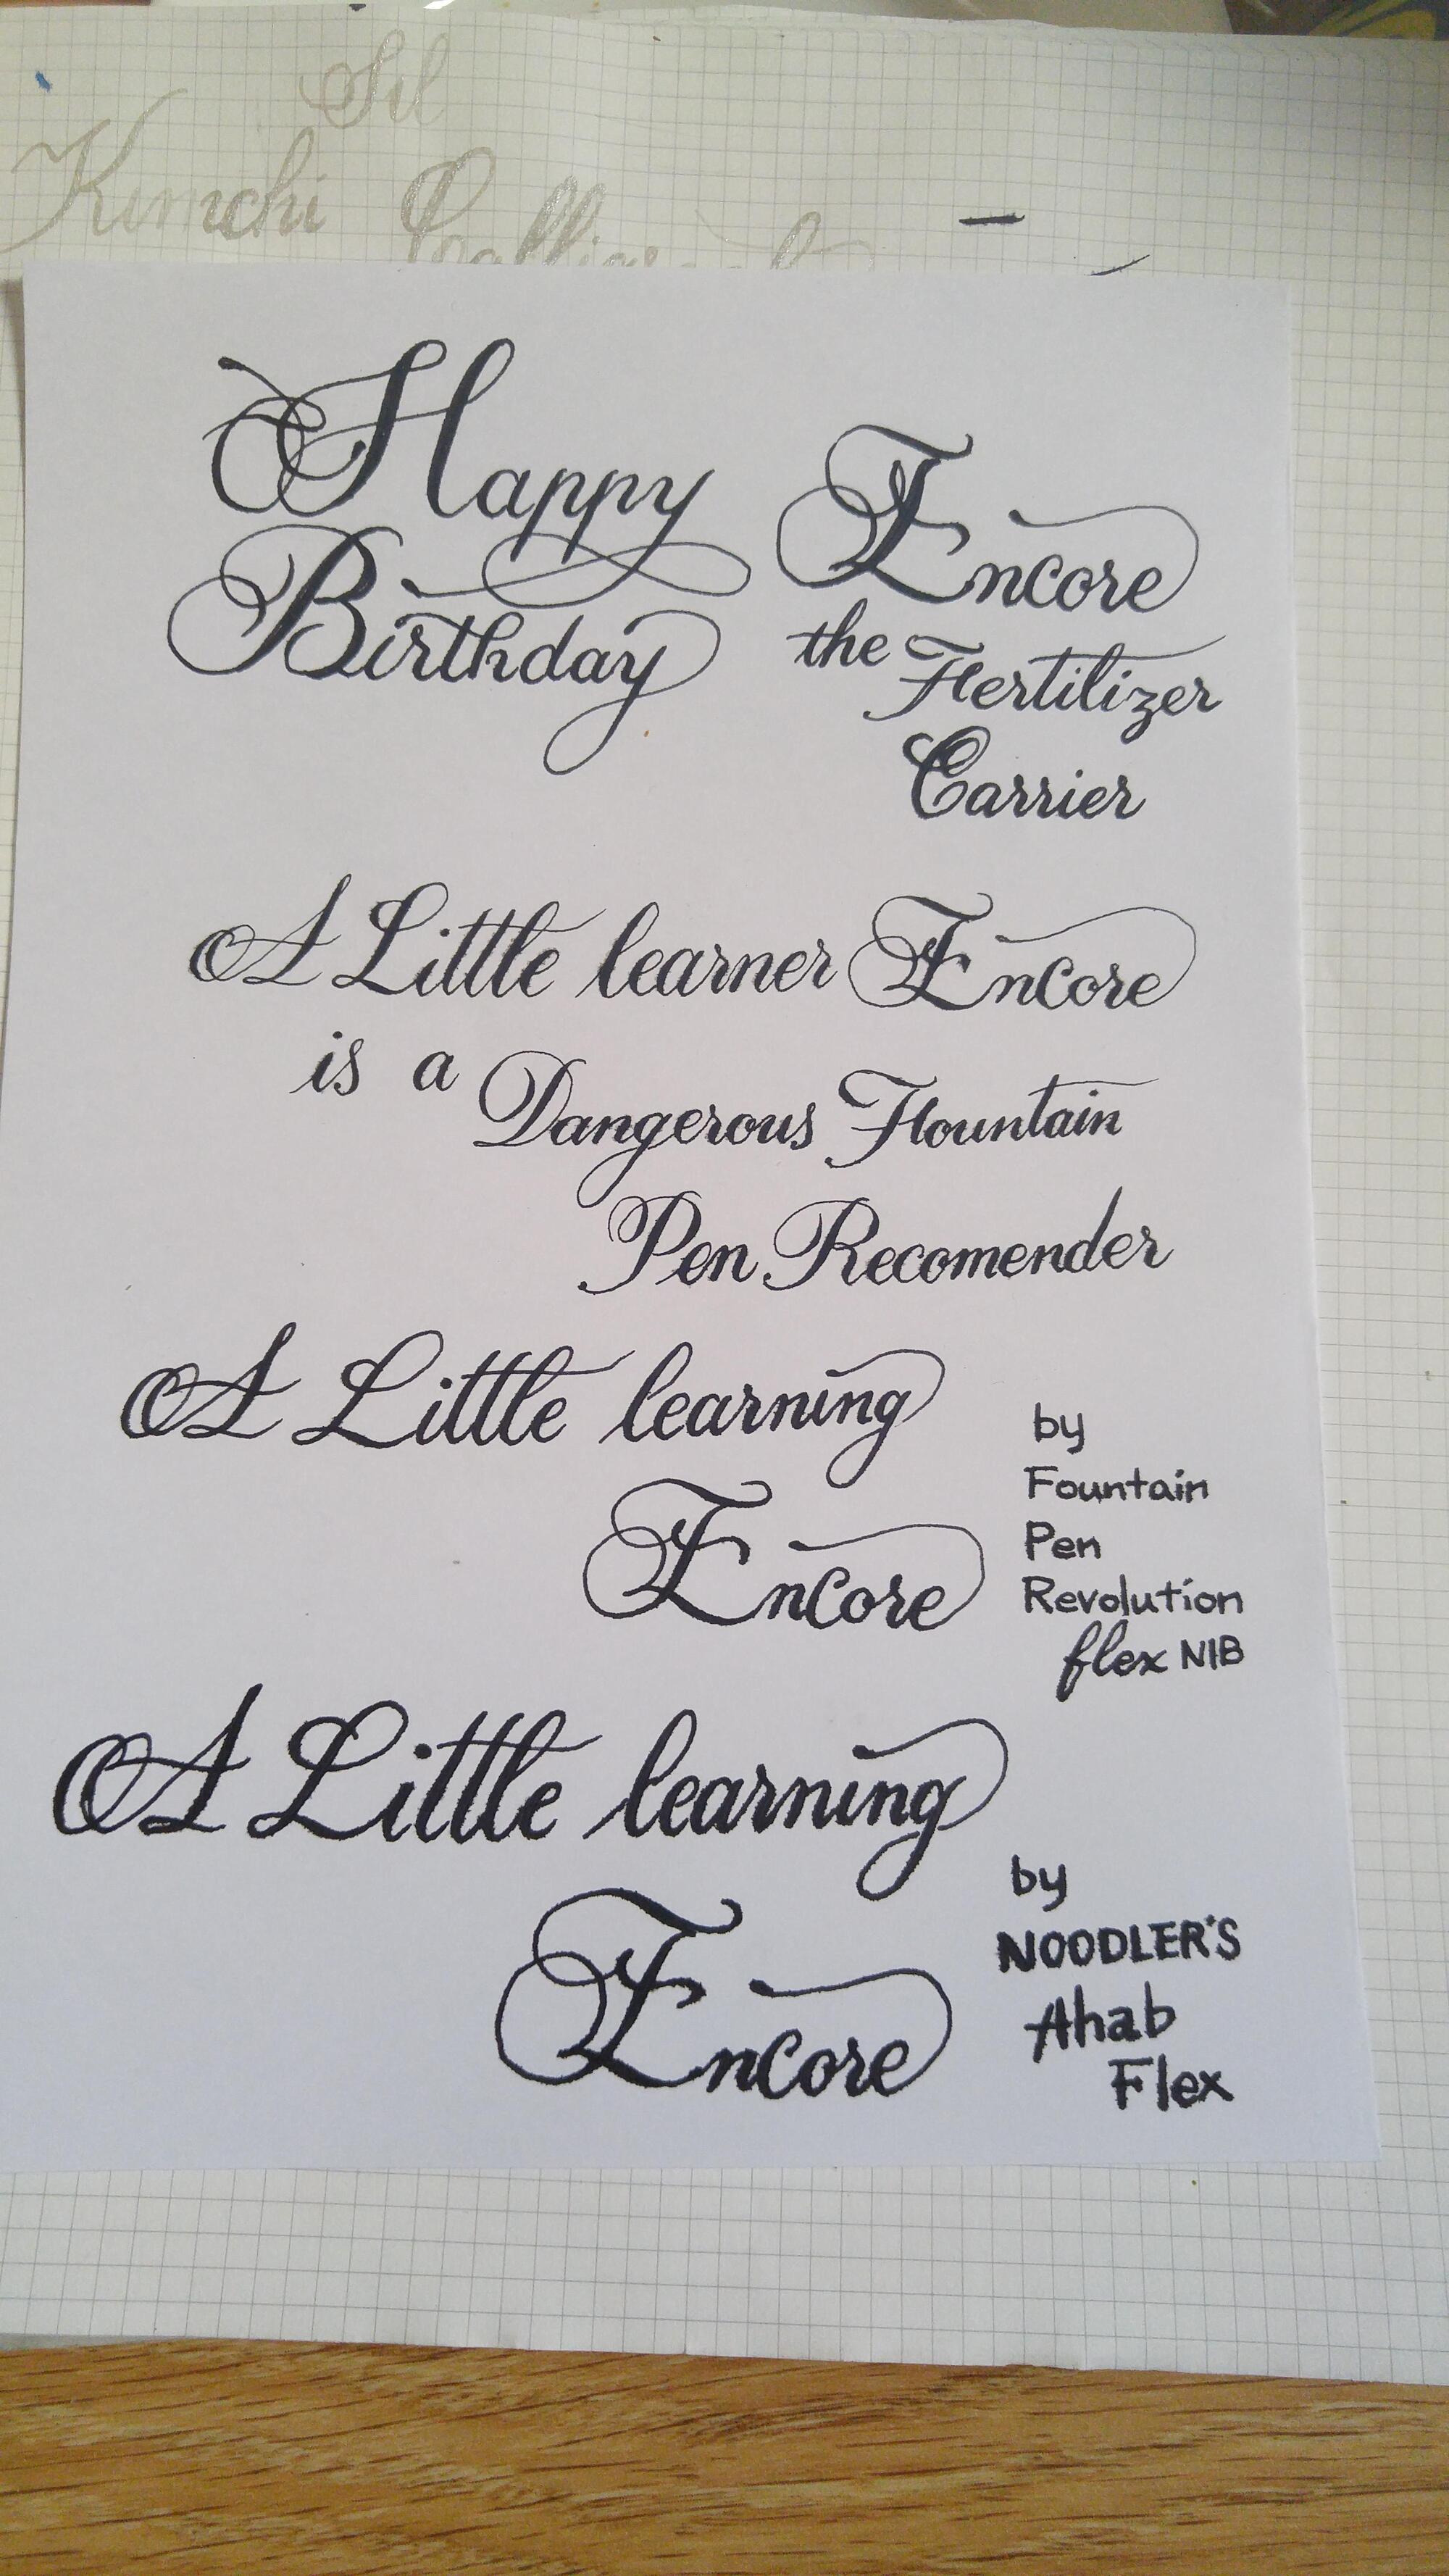 Sil
Kimchi
Happy
Birthday
Encore
the Fertilizer
Carrier
A Little learner Encore
is a Dangerous Fountain
Pen Recomender
A Little learning
Encore
by
Fountain
Pen
Revolution
flex NIB
A Little learning
Encore
by
NOODLER'S
Ahab
Flex